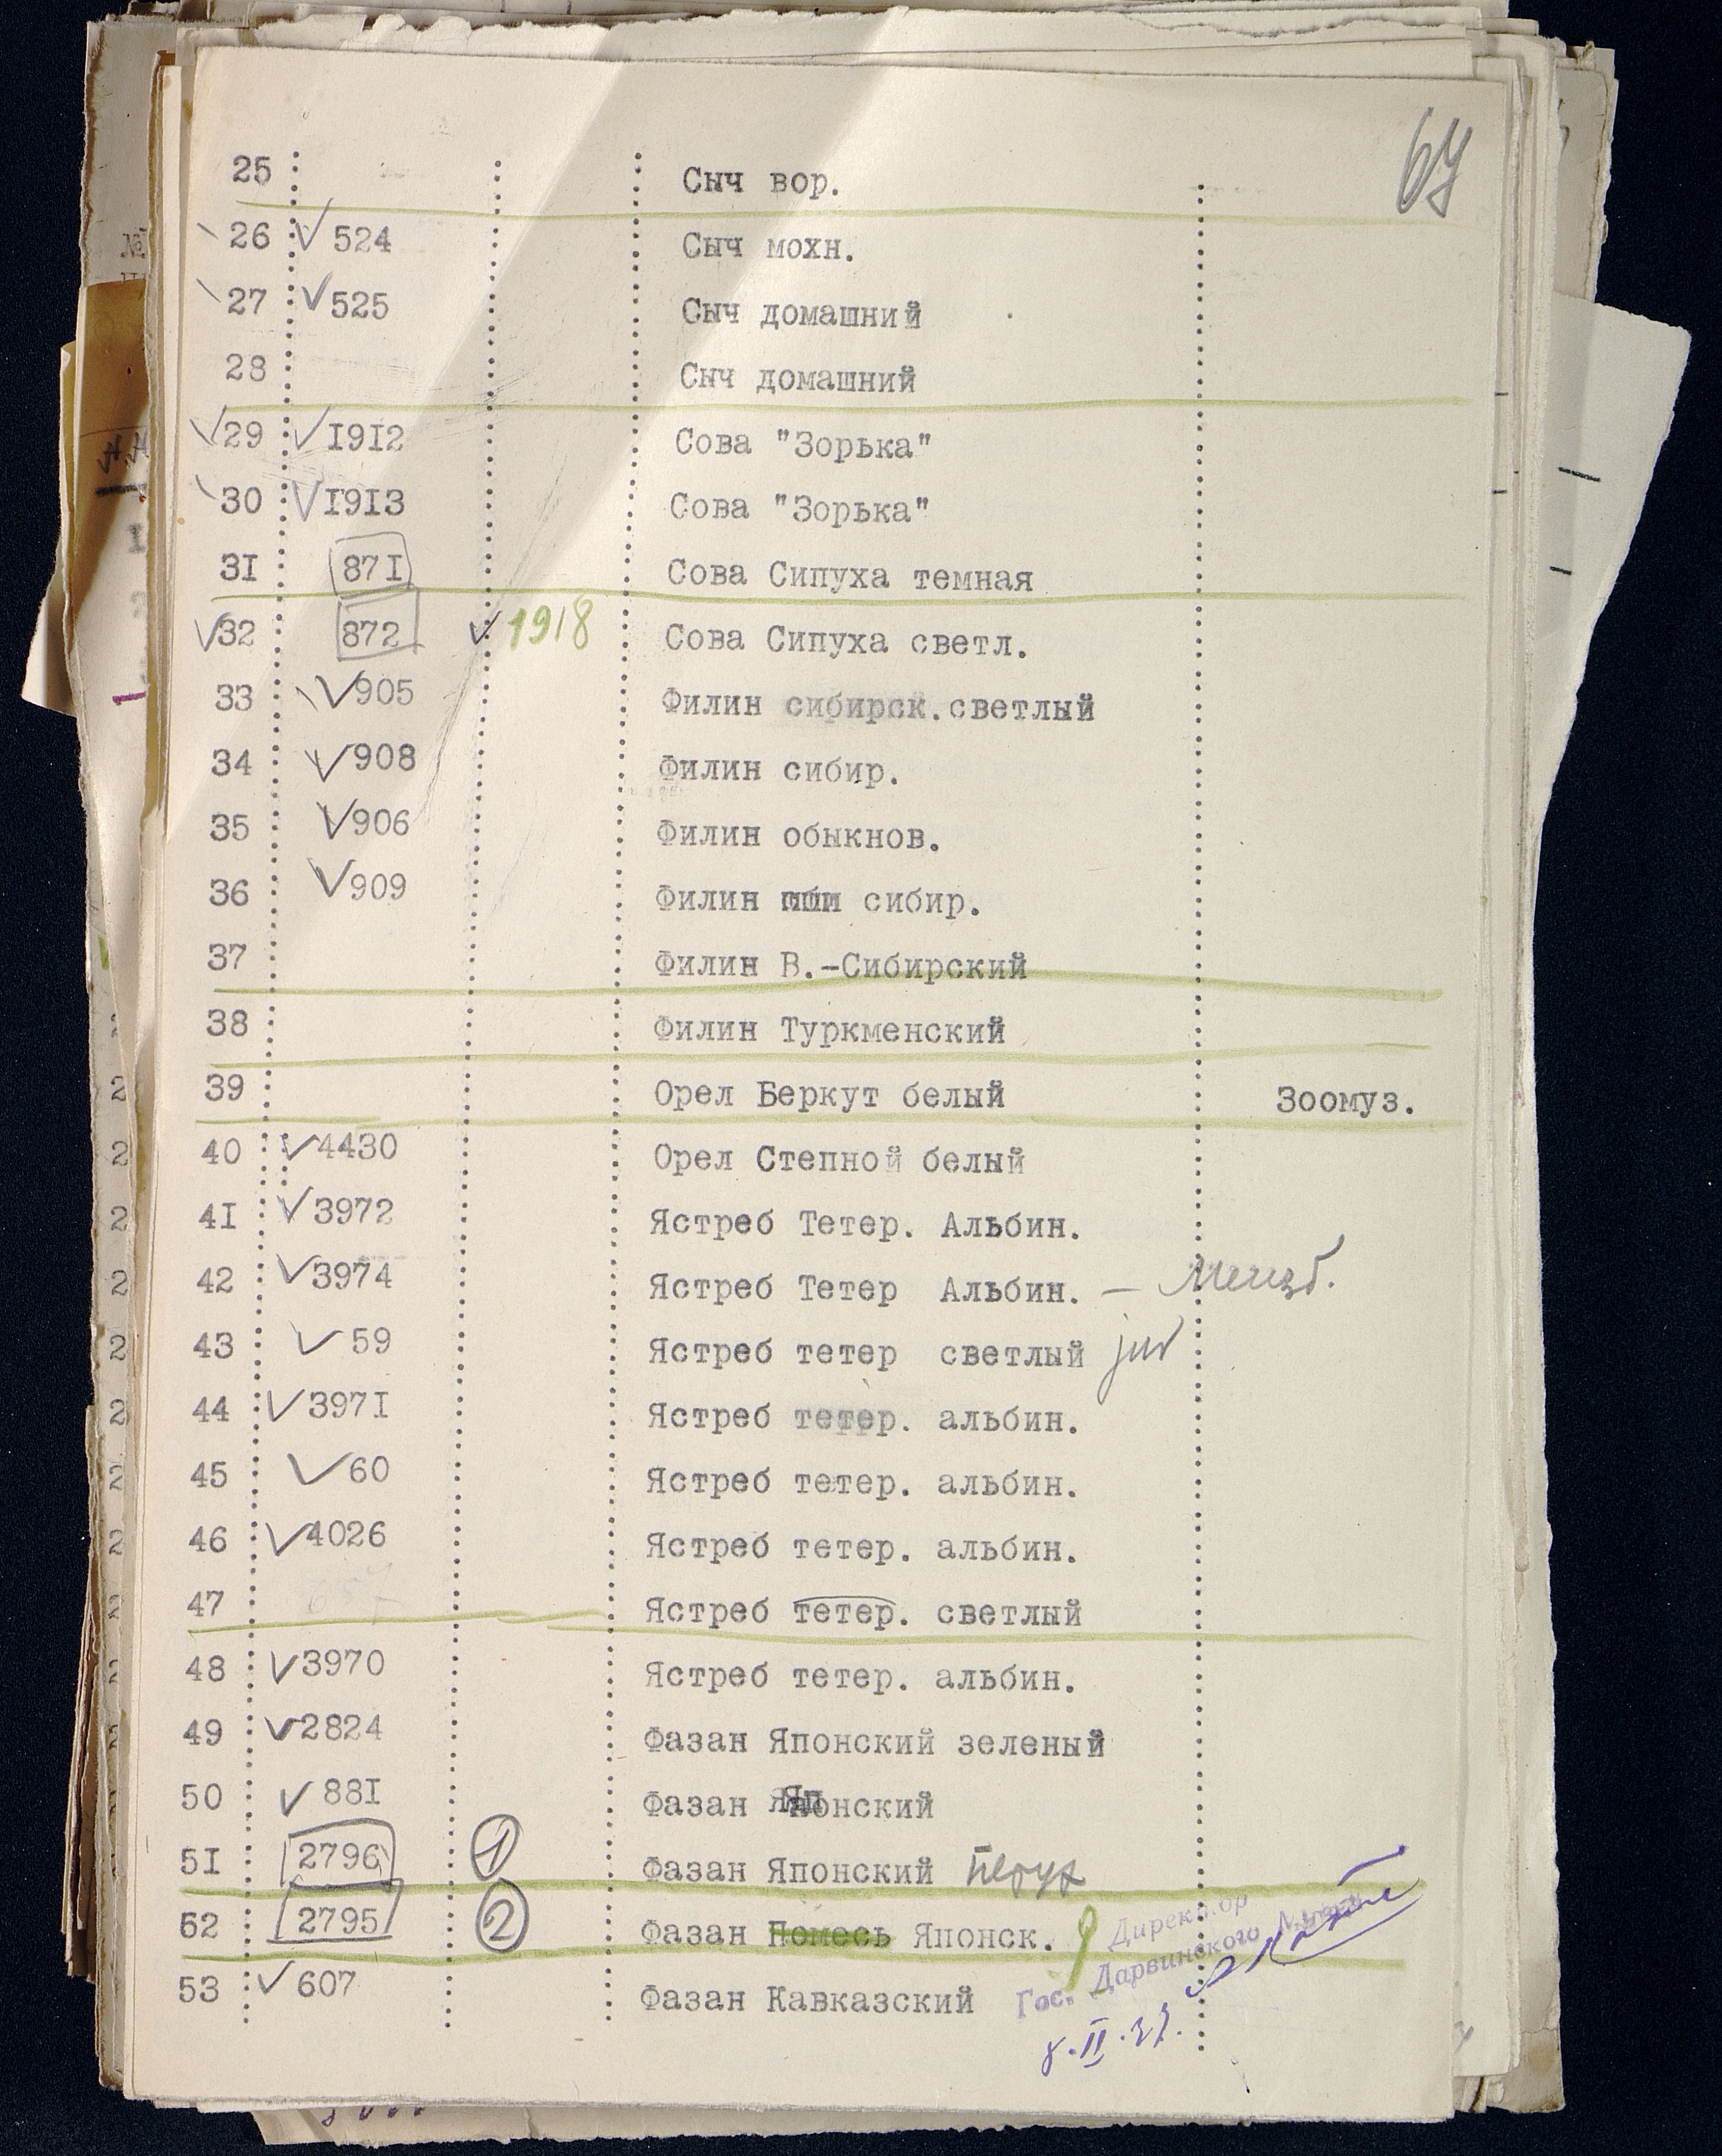 64
25 Сыч вор.
26 524 Сыч мохн.
27 525 Сыч домашний
28 Сыч домашний
29 1912 Сова "Зорька"
30 1913 Сова "Зорька"
31 871 Сова Сипуха темная
32 872 1918 Сова Сипуха светл.
33 905 Филин сибирск.светлый
34 908 Филин сибир.
35 906 Филин обыкнов.
36 909 Филин сибир.
37 Филин В.-Сибирский
38 Филин Туркменский
39 Орел Беркут белый Зоомуз.
40 4430 Орел Степной белый
41 3972 Ястреб Тетер. Альбин.
42 3974 Ястреб Тетер Альбин. — Мензб.
43 59 Ястреб тетер светлый juv
44 3971 Ястреб тетер. альбин.
45 60 Ястреб тетер. альбин.
46 4026 Ястреб тетер. альбин.
47 Ястреб тетер. светлый
48 3970 Ястреб тетер. альбин.
49 2824 Фазан Японский зеленый
50 881 Фазан Японский
51 2796 1 Фазан Японский петух
62 2795 2 Фазан Помесь Японск. ♀
Директор
Гос. Дарвинского Музея
53 607 Фазан Кавказский